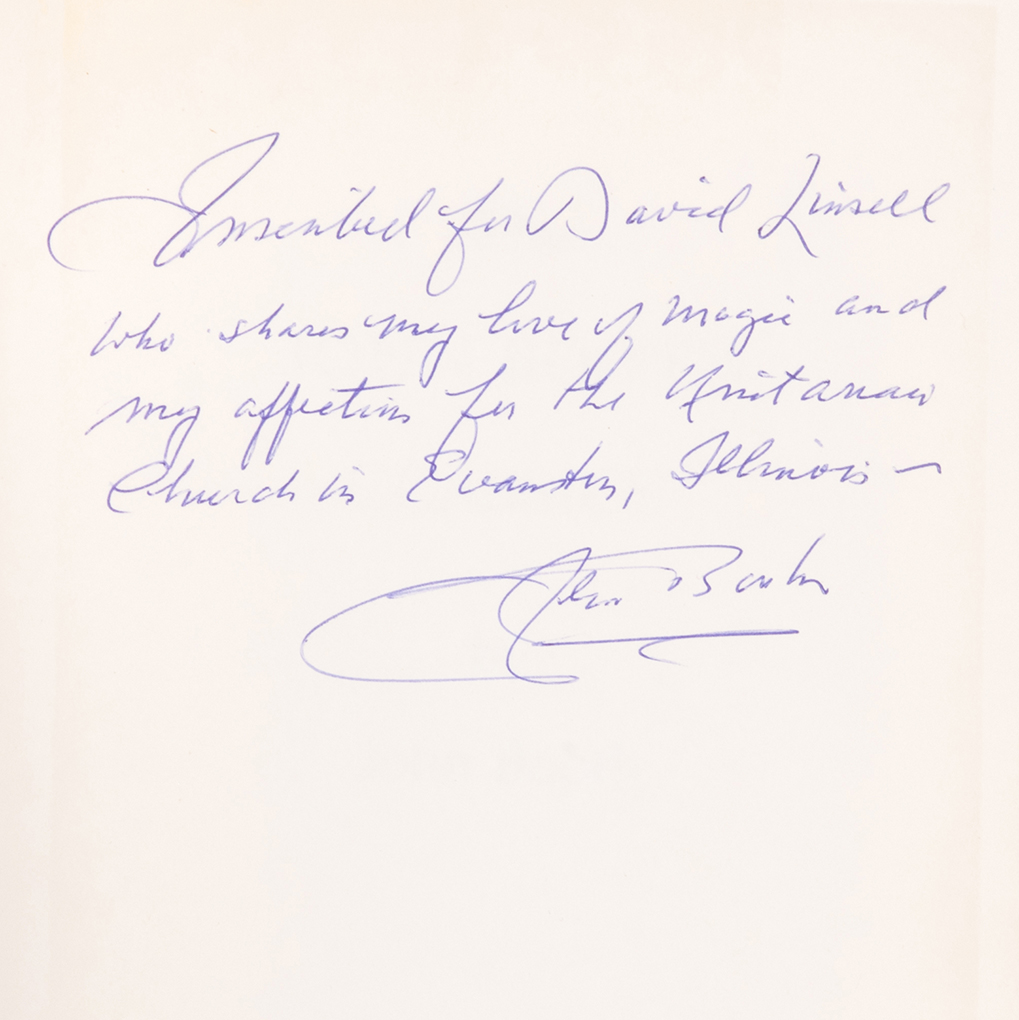 Inscribed for David Linsell
who shares my love of magic and
my affection for the Unitarian
Church in Evanston, Illinois –